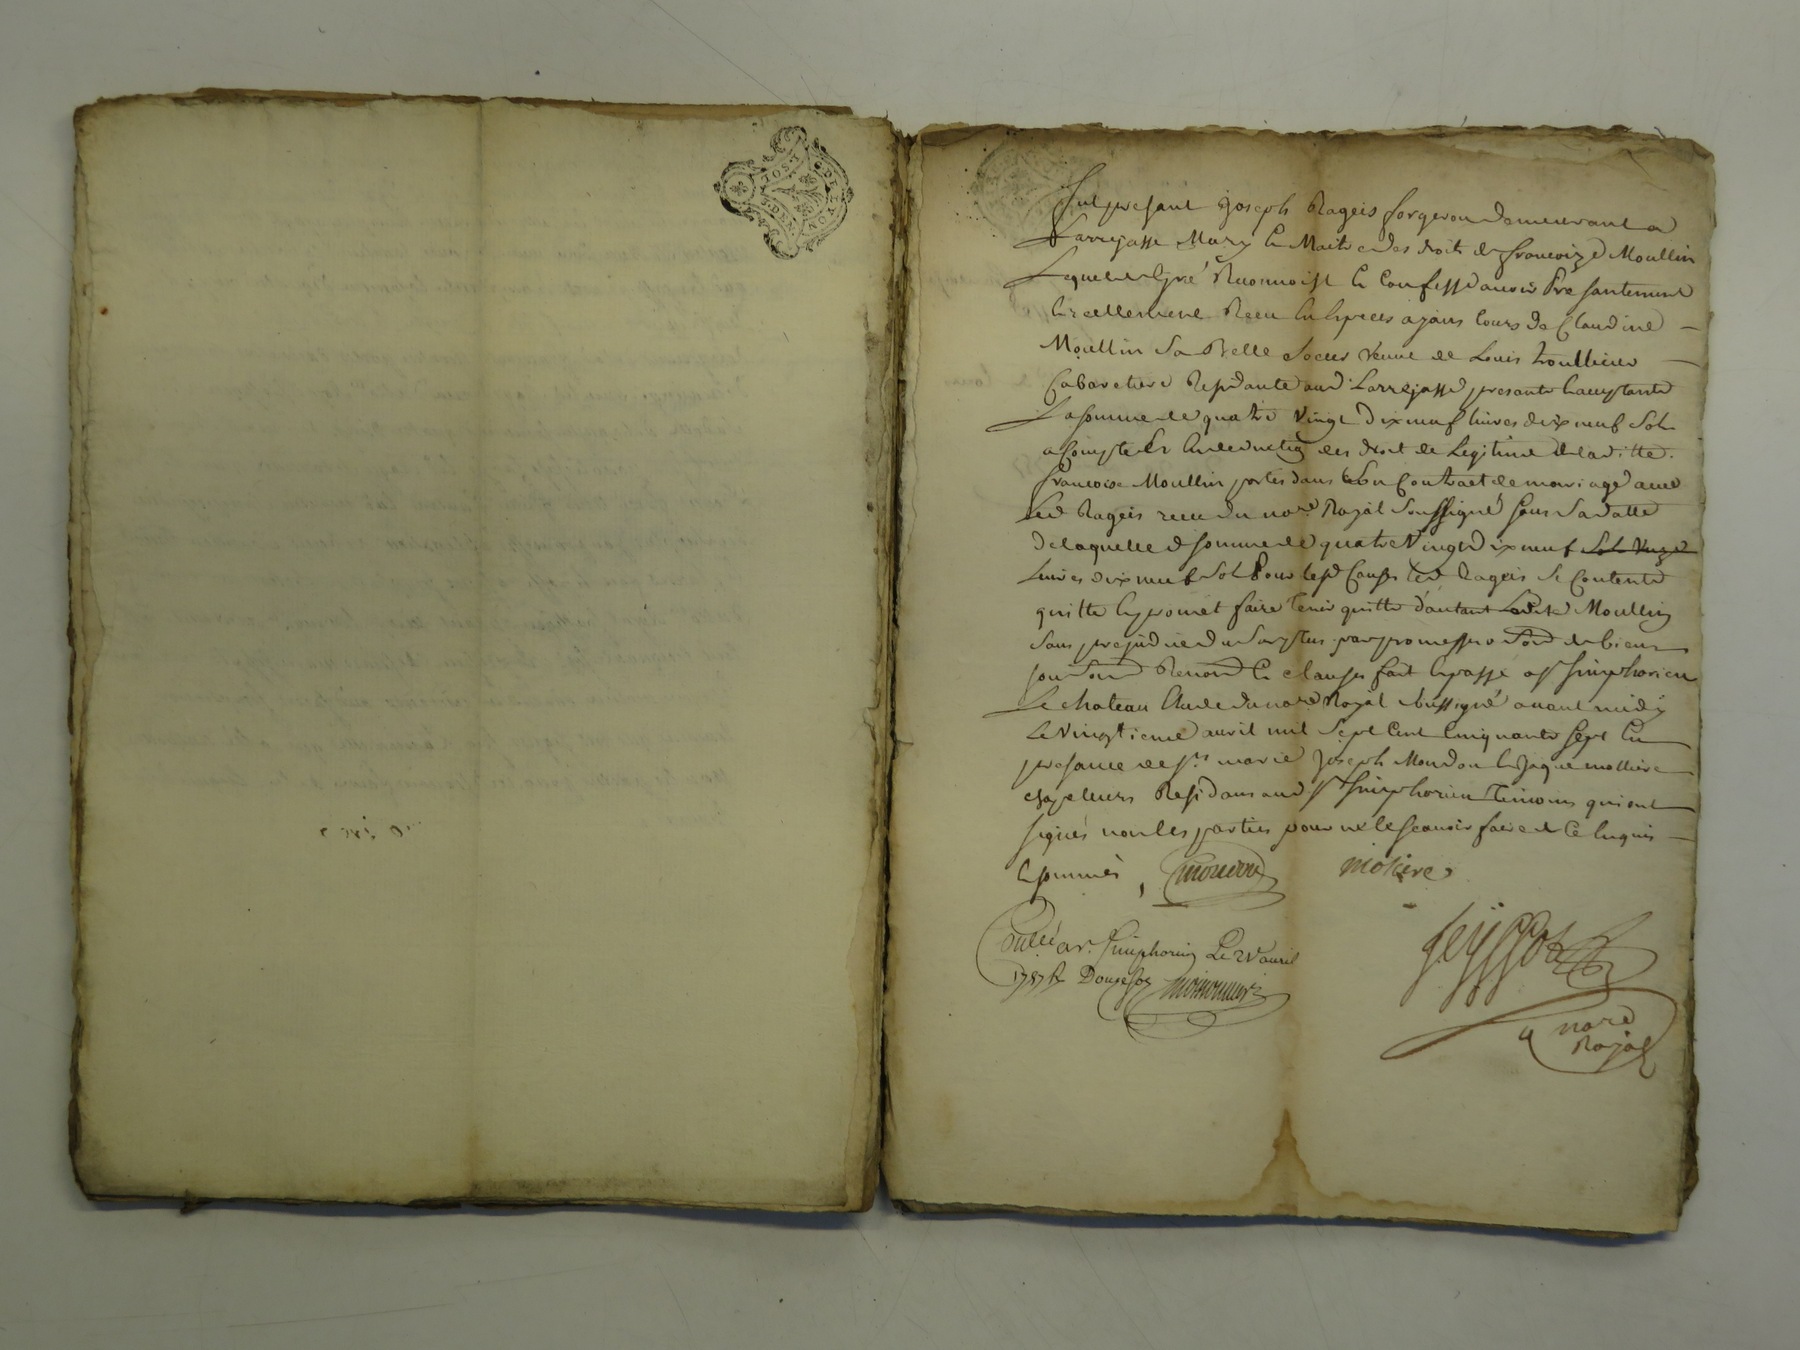 G. DE LYON
DEN
Fut presant Joseph Rageis forgeron demeurant a
Larrejasse Mary & Maitre des droit de francoize Moullin
Lequel de Gré Reconnoist & Confesse avoir Presantement
& reellement Receu en Especes ajans Cours de Claudine
Moullin Sa Belle Soeur veuve de Louis troullieur
Cabaretiere Residante aud Larrejasse presante & acceptante
La somme de quatre Vingt dix neuf livres dix neuf Sols
a Compte & en deduction des droit de Legitime de laditte
francoise Moullin portés dans Son Contract de mariage avec
Led Rageis receu du nore Royal Soussigné sous Sa datte
de laquelle d somme de quatre Vingt dix neuf
Livres dix neuf Sols Pour lesd Causes led Rageis Se Contente
quitte & promet faire tenir quitte d'autant Ladite Moullin
Sans prejudice du Surplus par promesses de biens
Renond & clauses fait & passé a St Simphorien
Le chateau Etude du nore Royal soussigné avant midy
Le Vingtieme avril mil Sept Cent Cinquante Sept En
presance de Srs marie Joseph Moudon & Jaque mollière
chapeliers Residans aud St Simphorien temoins qui ont
signés non les parties pour ne le scavoir faire de ce enquis
& sommés, moudon molière
Conllé a St Simphorien Le avril
1757 Rx Douze sols
nore
Royal